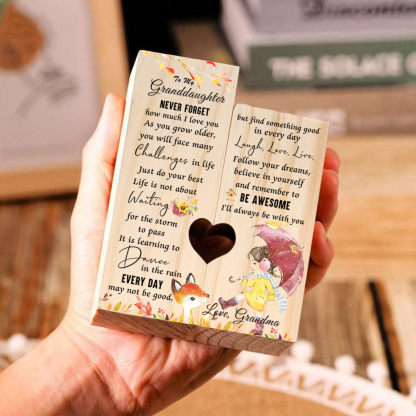 To My
Granddaughter
NEVER FORGET
how much I love you
As you grow older,
you will face many
Challenges in life
Just do your best
Life is not about
Waiting
for the storm
to pass
It is learning to
Dance
in the rain
EVERY DAY
may not be good,
but find something good
in every day
Laugh, Love, Live.
Follow your dreams,
believe in yourself
and remember to
BE AWESOME
I'll always be with you
Love, Grandma
THE SOLACE OF